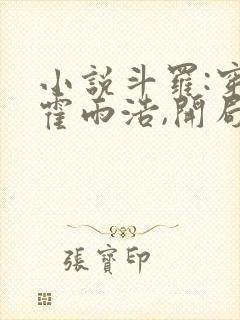 小說斗羅:穿
霍雨浩,開局
張寶印